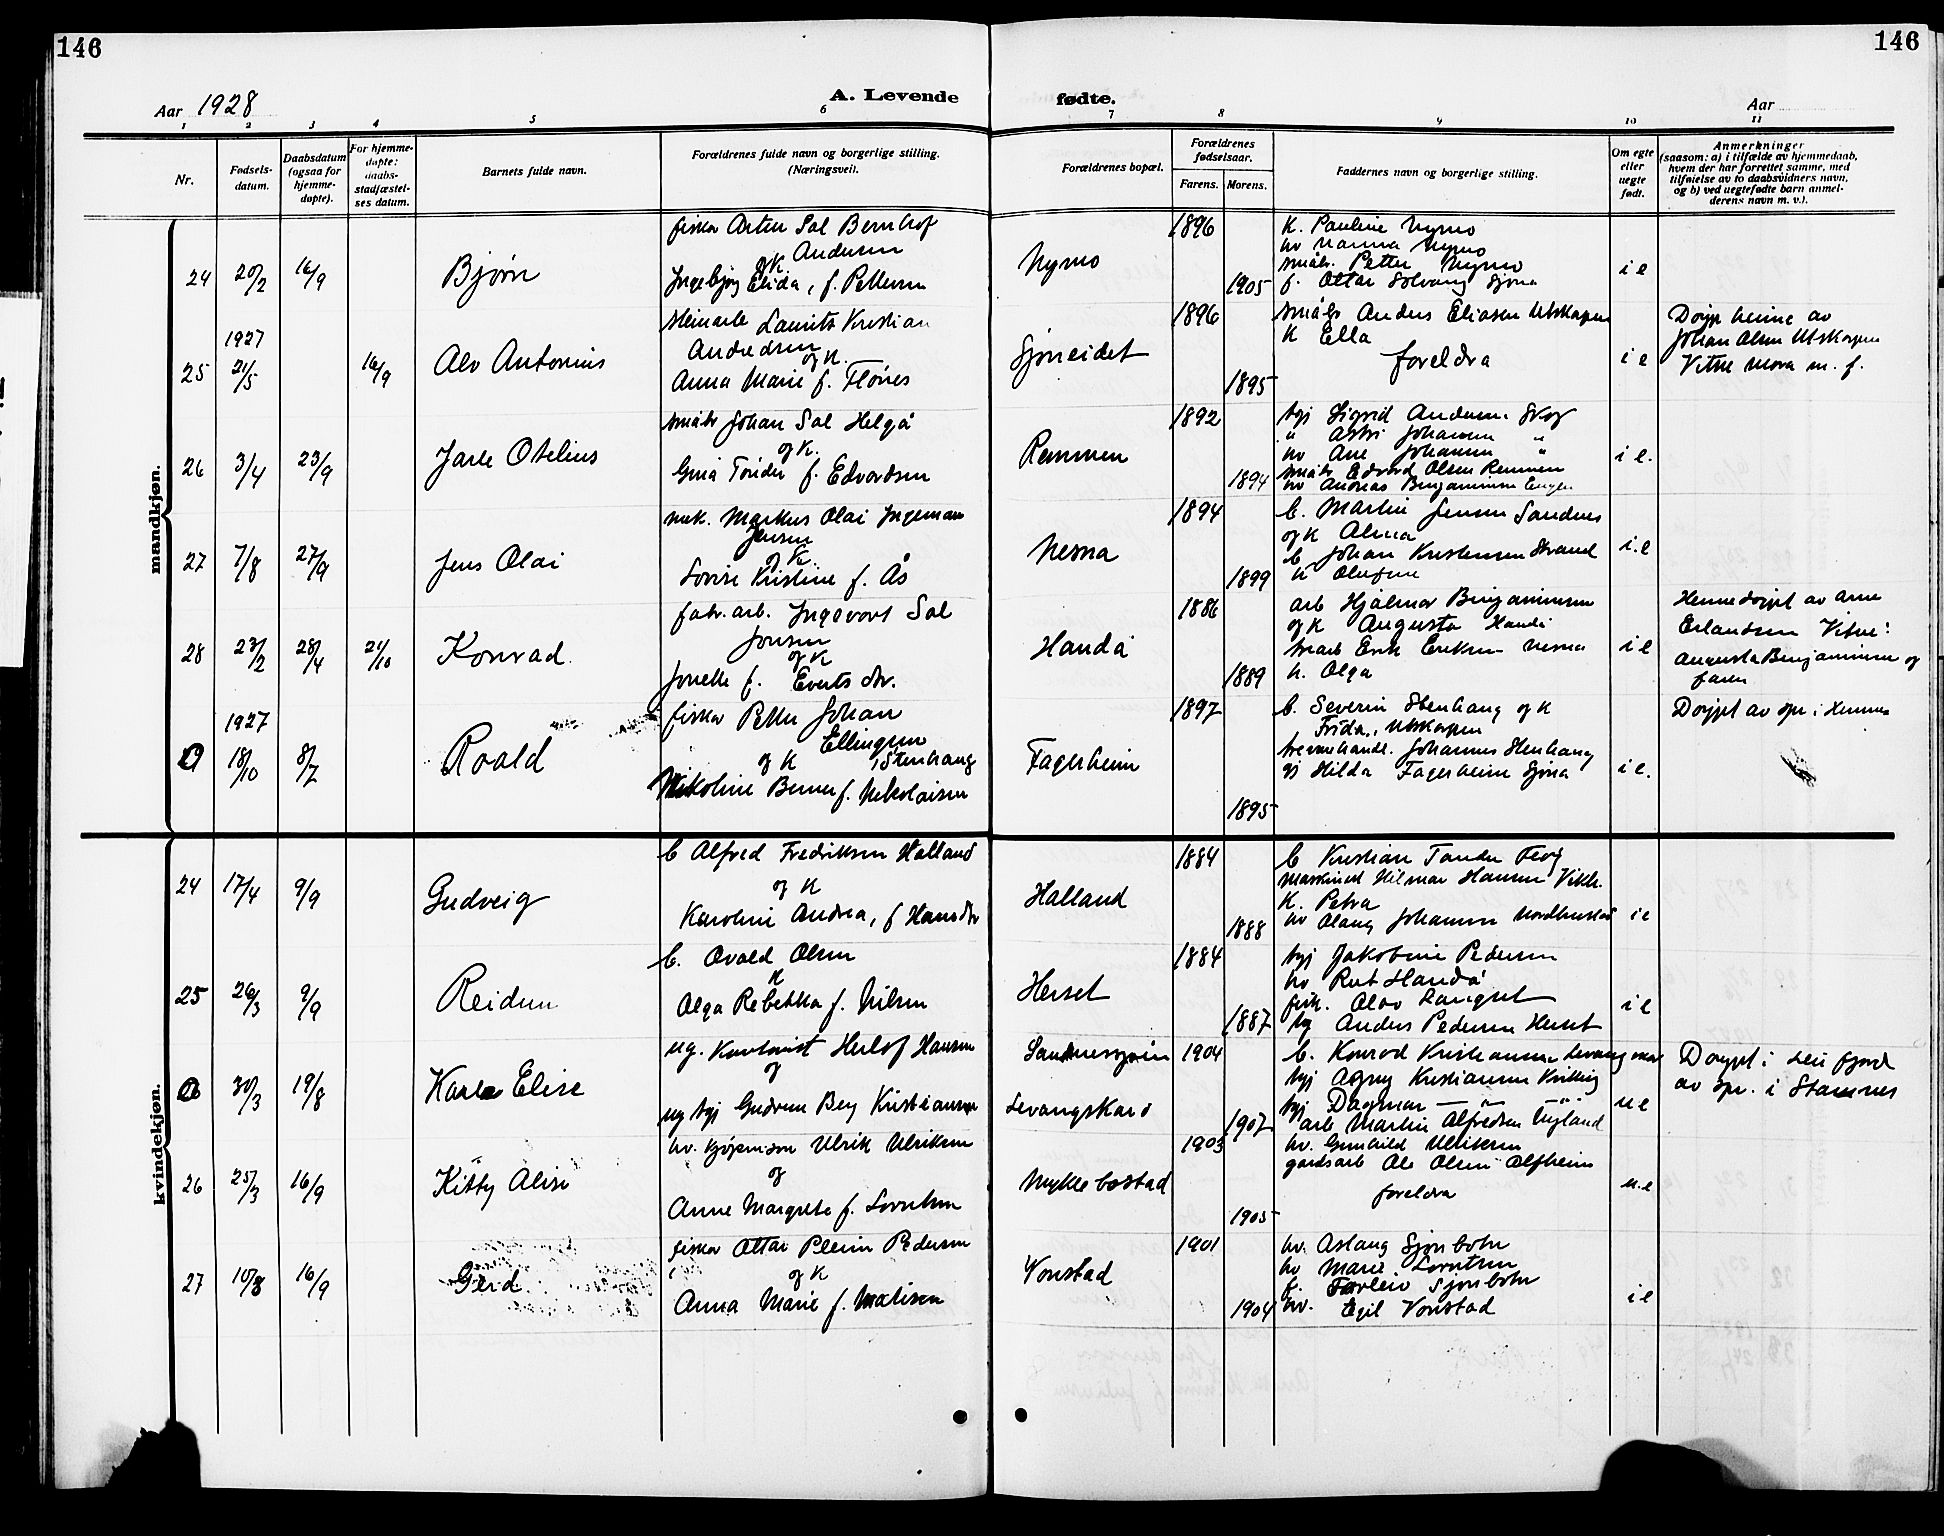 146
146
Aar 1928
A. Levende
fødte.
Aar
1 2 3 4 5 6 7 8 9 10 11
Nr.
Fødsels-
datum.
Daabsdatum
(ogsaa for
hjemme-
døpte).
For hjemme-
døpte:
daabs-
stadfæstel-
ses datum.
Barnets fulde navn.
Forældrenes fulde navn og borgerlige stilling.
(Næringsvei).
Forældrenes bopæl.
Forældrenes
fødselsaar.
Farens.
Morens.
Faddernes navn og borgerlige stilling.
Om egte
eller
uegte
født.
Anmerkninger
(saasom: a) i tilfælde av hjemmedaab,
hvem der har forrettet samme, med
tilføielse av to daabsvidners navn,
og b) ved uegtefødte barn anmel-
derens navn m. v.).
mandkjøn.
24 20/2 16/9 Bjørn
fisker Arten Sal Bernhof
Andersen
og K
Ingebjørg Elida, f. Pettersen
Nymo
1896
1905
K. Pauline Nymo
uv Nanna Nymo
småbr. Petter Nymo
f. Ottar Solvang Sjona
i e
25 1927
21/5 16/9 Alv Antonius
Laurits Kristian
Andersen
og K.
Anna Marie f. Flønes
Sjoneidet
1896
1895
småbr Anders Eliasen Utskarpen
K Ella
foreldra
i e
Døypt heime av
Johan Olsen Utskarpen
Vitne Mora m. f.
26 3/4 23/9 Jarle Otelius
småbr Johan Sal Helgå
og K.
Gina Tonder f. Edvardsen
Remmen
1892
1894
tyj Sigrid Andersen Skog
" Astri Johansen "
uv Ane Johansen "
småbr Edvard Olsen Remmen
uv Andreas Benjaminsen
i e.
27 7/8 27/9 Jens Olai
mek. Markus Olai Ingeman
Jensen
og K.
Lovise Kristine f. Ås
Nesna
1894
1899
b. Martin Jensen Sandnes
og K Alma
b Johan Kristensen Strand
K Olufine
i.e
28 23/2 28/4 21/10 Konrad.
fabr. arb. Ingevart Sal
Jonsen
og K
Jonette f. Evertsdtr.
Handå
1886
1889
arb Hjalmar Benjaminsen
og K Augusta Handå
Erik Eriksen Nesna
K. Olga
i e
Heimedøypt av Arne
Erlandsen Vitne:
Augusta Benjaminsen og
faren
1927
18/10 8/7 Roald
fisker Petter Johan
Ellingsen
og K , Stenhaug
Nikoline Berner f. Nikolaisen
Fagerheim
1897
1895
b. Severin Stenhaug og K
Frida, Utskarpen
trevarehandl. Johannes Stenhaug
gj Hilda Fagerheim Sjona
i e.
Døypt av spr. i Hemnes
kvindekjøn.
24 17/4 9/9 Gudveig
b Alfred Fredriksen Halland
og K
Karoline Andrea, f Hansdtr
Halland
1884
1888
b Kristian Tonder
maskinist Hilmar Hansen Vikh.
K. Petra
uv Olaug Johansen
i e
25 26/3 9/9 Reidun
b. Ovald Olsen
K
Olga Rebekka f. Nilsen
Herset
1884
1887
tyj Jakobine Pedersen
uv Rut Handå
fisk. Olav Langset
tg Anders Pedersen Herset
i e
30/3 19/8 Karla Elise
ug. Herlof Hansen
og
ug tyj Gudrun Berg Kristiansen
Levangskard
1904
1907
b. Konrad Kristiansen
tyj Agny Kristiansen
tyj Dagmar — " — "
arb Martin Alfredsen Nyland
u e
Døypt i Leirfjord
av spr. i Stamnes
26 25/3 16/9 Kitty Alise
uv. kjøpmann Ulrik Ulriksen
og
Anne Margrete f. Lorntsen
Myklebostad
1903
1905
uv. Gunhild Ulriksen
gardsarb Ole Olsen Alfheim
foreldra
u.e
27 10/8 16/9 Gerd
fisker Ottar Pedersen
og K
Anna Marie f. Matisen
Vonstad
1901
1904
uv. Aslaug Sjonbotn
uv Marie Lorntsen
f. Torleiv Sjonbotn
uv. Egil Vonstad
i e